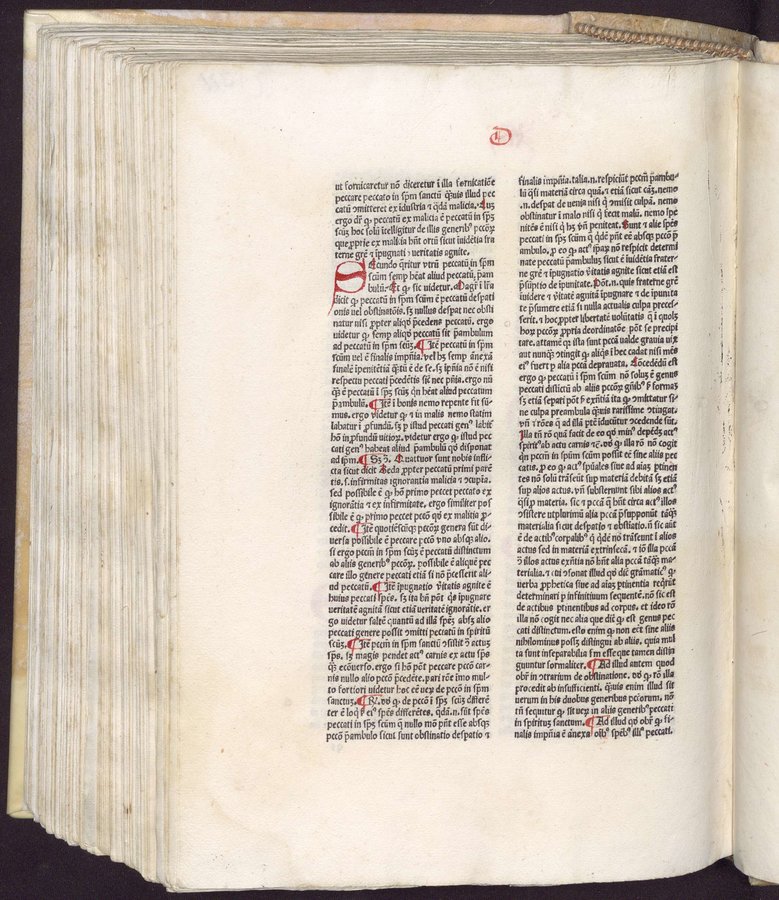 D
ut fornicaretur nō diceretur ī illa fornicatiōe
peccare peccato in spm̄ sanctū q̄uis illud pec
catū ɔmitteret ex īdustria ⁊ q̄dā malicia. Auꝫ
ergo dr̄ ꝙ peccatū ex malicia ē peccatū in spꝫ
scūꝫ hoc solū ītelligitur de illis generibꝰ pccōꝝ
que ꝓprie ex malitia hn̄t ortū sicut īuidētia fra
terne grē ⁊ īpugnati ⁊ ueritatis agnite.
Secundo q̄ritur vtrū peccatū in spm̄
scūm semp hēat aliud peccatū, p̄am
bulū. Et ꝙ sic videtur. Magr̄ ī lr̄a
dicit ꝙ peccatū in spm̄ scūm ē peccatū despati
onis uel obstinatiōis. sꝫ nullus despat nec obsti
natur nisi ꝓpter aliqd̄ p̄cedens pctātū. ergo
videtur ꝙ semp aliqd̄ peccatū sit p̄ambulum
ad peccatū in spm̄ scūꝫ. ¶ Itē peccatū in spm̄
scūm vel ē finalis impn̄ia. vel hꝫ semp ānexā
finalē īpenitētiā q̄tū ē de se. sꝫ īpn̄ia nō ē nisi
respectu peccati p̄cedētis sic̄ nec pn̄ia. ergo nū
q̄ ē peccatū ī spm̄ scūꝫ qn̄ hēat aliud peccatum
p̄ambulū. ¶ Itē ī bonis nemo repente fit sū-
mus. ergo videtur ꝙ ⁊ in malis nemo statim
labatur ī ꝓfundū. sꝫ ꝑ istud peccati genꝰ labit̄
hō in ꝓfundū uitioꝝ. videtur ergo ꝙ istud pec
cati genꝰ habeat aliud p̄ambulū qd̄ disponat
ad ipm̄. ¶ Sꝫ ɔ̄. Quattuor sunt nobis infli-
cta sicut dicit Beda ꝓpter peccatū primi parē
tis. s. infirmitas ignorantia malicia ⁊ ɔcupīa.
sed possibile ē ꝙ hō primo peccet peccato ex
ignorātia ⁊ ex infirmitate. ergo similiter pos
sibile ē ꝙ primo peccet pccō qd̄ ex malitia ꝓ
cedit. ¶ Itē quotiēscūqꝫ pccōꝝ genera sūt di-
uersa possibile ē peccare pccō vno absqꝫ alio.
si ergo pccm̄ in spm̄ scūꝫ ē peccatū distinctum
ab aliis generibꝰ pccōꝝ. possibile ē aliquē pec
care illo genere peccati etiā si nō p̄cesserit ali
ud peccatū. ¶ Itē ipugnatio v̄itatis agnite ē
huius peccati spēs. sꝫ ita bn̄ pōt qs̄ īpugnare
veritatē agnitā sicut etiā veritatē ignoratīe. er
go uidetur saltē quantū ad illā spēꝫ absqꝫ alio
peccati genere possit ɔmitti peccatū in spiritū
scūꝫ. ¶ Itē pccm̄ in spm̄ sanctū ɔsistit ī actu
spūs. sꝫ magis pendet actꝰ carnis ex actu spūs
q̄ꝫ ecōuerso. ergo si hō pōt peccare pccō car
nis nullo alio pccō p̄cedēte. pari rōe īmo mul-
to fortiori videtur hoc eē ueꝝ de pccō in spm̄
sanctuꝫ. ¶ R̄. dō ꝙ de pccō ī spꝫ scūꝫ differē
ter ē loqꝰ ꝫ eiꝰ spēs discretes. q̄dā .n. sūt spēs
peccati in spm̄ scūm q̄ nullo mō pn̄t esse absqꝫ
pccō p̄ambulo sicut sunt obstinatio despatio ⁊
finalis impn̄ia. talia .n. respiciūt pccm̄ p̄ambu-
lū q̄si materiā circa quā. ⁊ etiā sicut cāꝫ. nemo
.n. despat de venia nisi q̄ ɔmisit culpā. nemo
obstinatur ī malo nisi q̄ fecit malū. nemo īpe
nitēs ē nisi q̄ hꝫ vn̄ peniteat. Sunt ⁊ alie spēs
peccati in spm̄ scūm q̄ qdē pn̄t eē absqꝫ pccō p̄
ambulo. ꝓ eo ꝙ actꝰ ipaꝝ nō respicit determi
nate peccatū p̄ambulū sicut ē īuidētia frater-
ne grē ⁊ īpugnatio v̄itatis agnite sicut etiā est
p̄sūptio de īpunitate. Pōt .n. quis fraterne grē
īuidere ⁊ v̄itatē agnitā īpugnare ⁊ de īpunita
te p̄sumere etiā si nulla actualis culpa p̄ces-
serit. ⁊ hoc ꝓpter libertatē uolūtatis q̄ ī quolꝫ
hoꝝ pccōꝝ ꝓpria deordinatōe pōt se precipi
tare. attamē qꝫ ista sunt pccā ualde grauia uix
aut nunqꝫ ɔtingit ꝙ aliqs̄ ī hec cadat nisi mēs
eiꝰ fuerit ꝑ alia pccā deprauata. Cōcedēdū est
ergo ꝙ peccatū ī spm̄ scūm nō solū ē genus
peccati distinctū ab aliis pccōꝝ gn̄ibꝰ ꝑ formaꝫ
sꝫ etiā separi pōt ꝑ exn̄tiā ita ꝙ ɔmittatur si-
ne culpa preambula q̄uis rarissime ɔtingat.
vn̄ ⁊ rōes q̄ ad illā ptē īducūtur ɔcedende sūt.
Illa tn̄ rō qua facit de eo qd̄ minꝰ depēdꝫ actꝰ
spūs ab actu carnis ⁊c̄. dō ꝙ illa rō nō cogit
qn̄ pccm̄ in spūm scūm possit eē sine aliis pec
catis. ꝓ eo ꝙ actꝰ spūales siue ad aiaꝫ ptinen
tes nō solū trāseūt sup materiā debitā sꝫ etiā
sup alios actus. vn̄ substernunt sibi alios actꝰ
q̄si ꝓ materia. sic ⁊ pccā q̄ hn̄t circa actꝰ illos
ɔsistere utplurimū alia pccā p̄supponūt tāqꝫ
materialia sicut despatio ⁊ obstīatio. n̄ sic aūt
ē de actibꝰ corpalibꝰ q̄ qdē nō trāseunt ī alios
actus sed in materiā extrinsecā. ⁊ iō illa pccā
ꝫ illos actus exn̄tia nō hn̄t alia pccā tāqꝫ ma-
terialia. ⁊ cui ɔsonat illud qd̄ dic̄ grāmaticꝰ ꝙ
uerba ꝓphetica siue ad aiaꝫ ptinentia reqrūt
determinari ꝑ infinitiuum sequentē. nō sic est
de actibus ptinentibus ad corpus. et ideo rō
illa nō cogit nec alia que dic̄ ꝙ est genus pec
cati distinctum. esto enim ꝙ non eēt sine aliis
nihilominus possꝫ distingui ab aliis. quia mul
ta sunt inseparabilia sm̄ esse que tamen distin
guuntur formaliter. ¶ Ad illud autem quod
obr̄ in ɔtrarium de obstinatione. dō ꝙ rō illa
procedit ab insufficienti. q̄uis enim illud sit
uerum in his duobus generibus peccorum. nō
tn̄ sequitur ꝙ sit ueꝝ in aliis generibꝰ peccati
in spiritus sanctum. ¶ Ad illud qd̄ obr̄ ꝙ fi-
nalis impn̄ia ē ānexa oībꝰ spēbꝰ illiꝰ peccati.